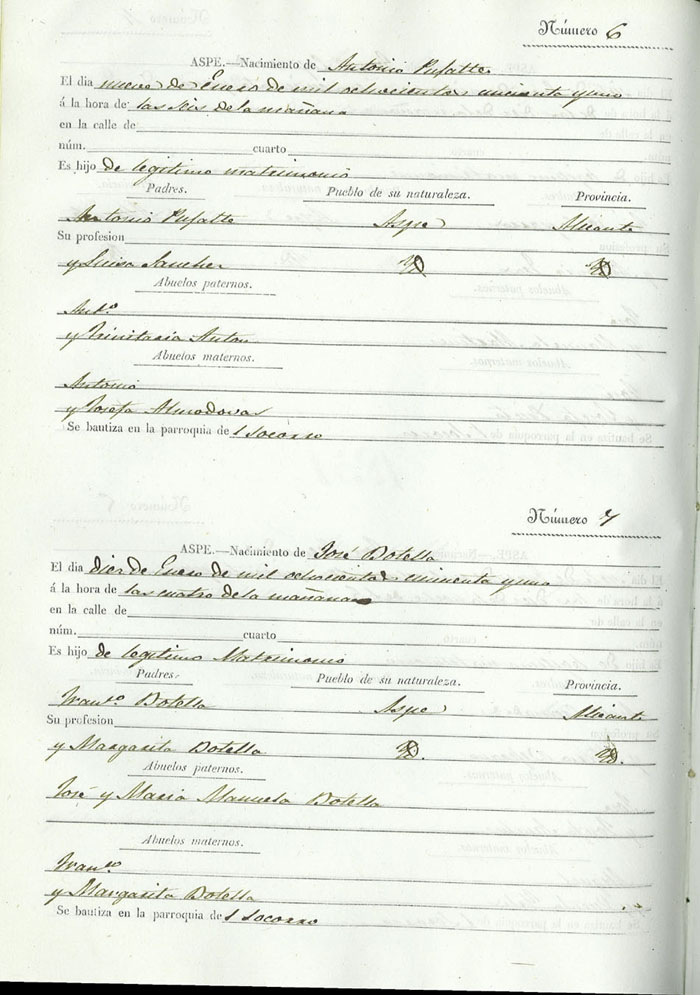 Número 6
ASPE.—Nacimiento de Antonio Pujalte
El dia nueve de Enero de mil ochocientos cincuenta y uno
á la hora de las seis de la mañana
en la calle de
núm. cuarto
Es hijo de legitimo matrimonio
Padres. Pueblo de su naturaleza. Provincia.
Antonio Pujalte Aspe Alicante
Su profesion
y Luisa Sanchez
Abuelos paternos.
Antº
y Trinitaria Anton
Abuelos maternos.
Antonio
y Josefa Almodovar
Se bautiza en la parroquia de l Socorro
Número 7
ASPE.—Nacimiento de José Botella
El dia diez de Enero de mil ochocientos cincuenta y uno
á la hora de las cuatro de la mañana
en la calle de
núm. cuarto
Es hijo de legitimo Matrimonio
Padres. Pueblo de su naturaleza. Provincia.
Franco. Botella Aspe Alicante
Su profesion
y Margarita Botella
Abuelos paternos.
José y Maria Manuela Botella
Abuelos maternos.
Franco.
y Margarita Botella
Se bautiza en la parroquia de l Socorro